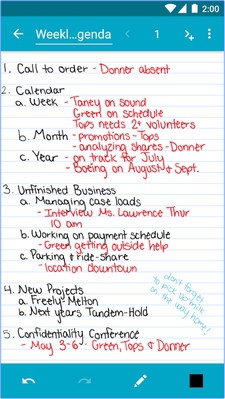 2:00
Weekl...genda
1
1. Call to order - Donner absent
2. Calendar
a. Week - Taney on sound
Green on schedule
Tops needs 2+ volunteers
b. Month - promotions - Tops
- analyzing shares - Donner
c. Year - on track for July
- Boeing on August & Sept.
3. Unfinished Business
a. Managing case loads
- Interview Ms. Lawrence Thur
10 am
b. Working on payment schedule
- Green getting outside help
c. Parking & ride-share
- location downtown
don't forget
to pick up
on the way home!
4. New Projects
a. Freely-Melton
b. Next years Tandem-Hold
5. Confidentiality Conference
- May 3-6 - Green, Tops & Donner